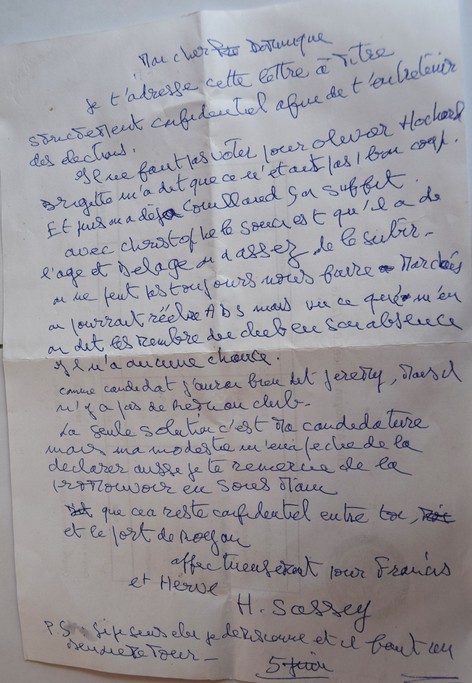 Mon cher Dominique
je t'adresse cette lettre à titre
strictement confidentiel afin de t'entretenir
des élections.
Il ne faut pas voter pour olivier
Brigitte m'a dit que ce n'était pas 1 bon coup.
Et puis on a déjà ça suffit.
avec christophe le souci est qu'il a de
l'age et Delage on a assez de le subir -
on ne peut pas toujours nous faire
on pourrait réélire ADS mais vu ce que m'en
on dit les membre du club en son absence
Il n'a aucune chance.
comme candidat j'aurai bien dit jeremy, mais il
n'y a pas de au club -
La seule solution c'est ma candidature
mais ma modestie m'empeche de la
déclarer aussi je te remercie de la
promouvoir en sous main
que cela reste confidentiel entre toi,
et le port de royan
affectueusement pour Francis
et Hervé
H. Sassey
PS. si je suis élu je démissionne et il faut un
deuxième tour -
5 juin